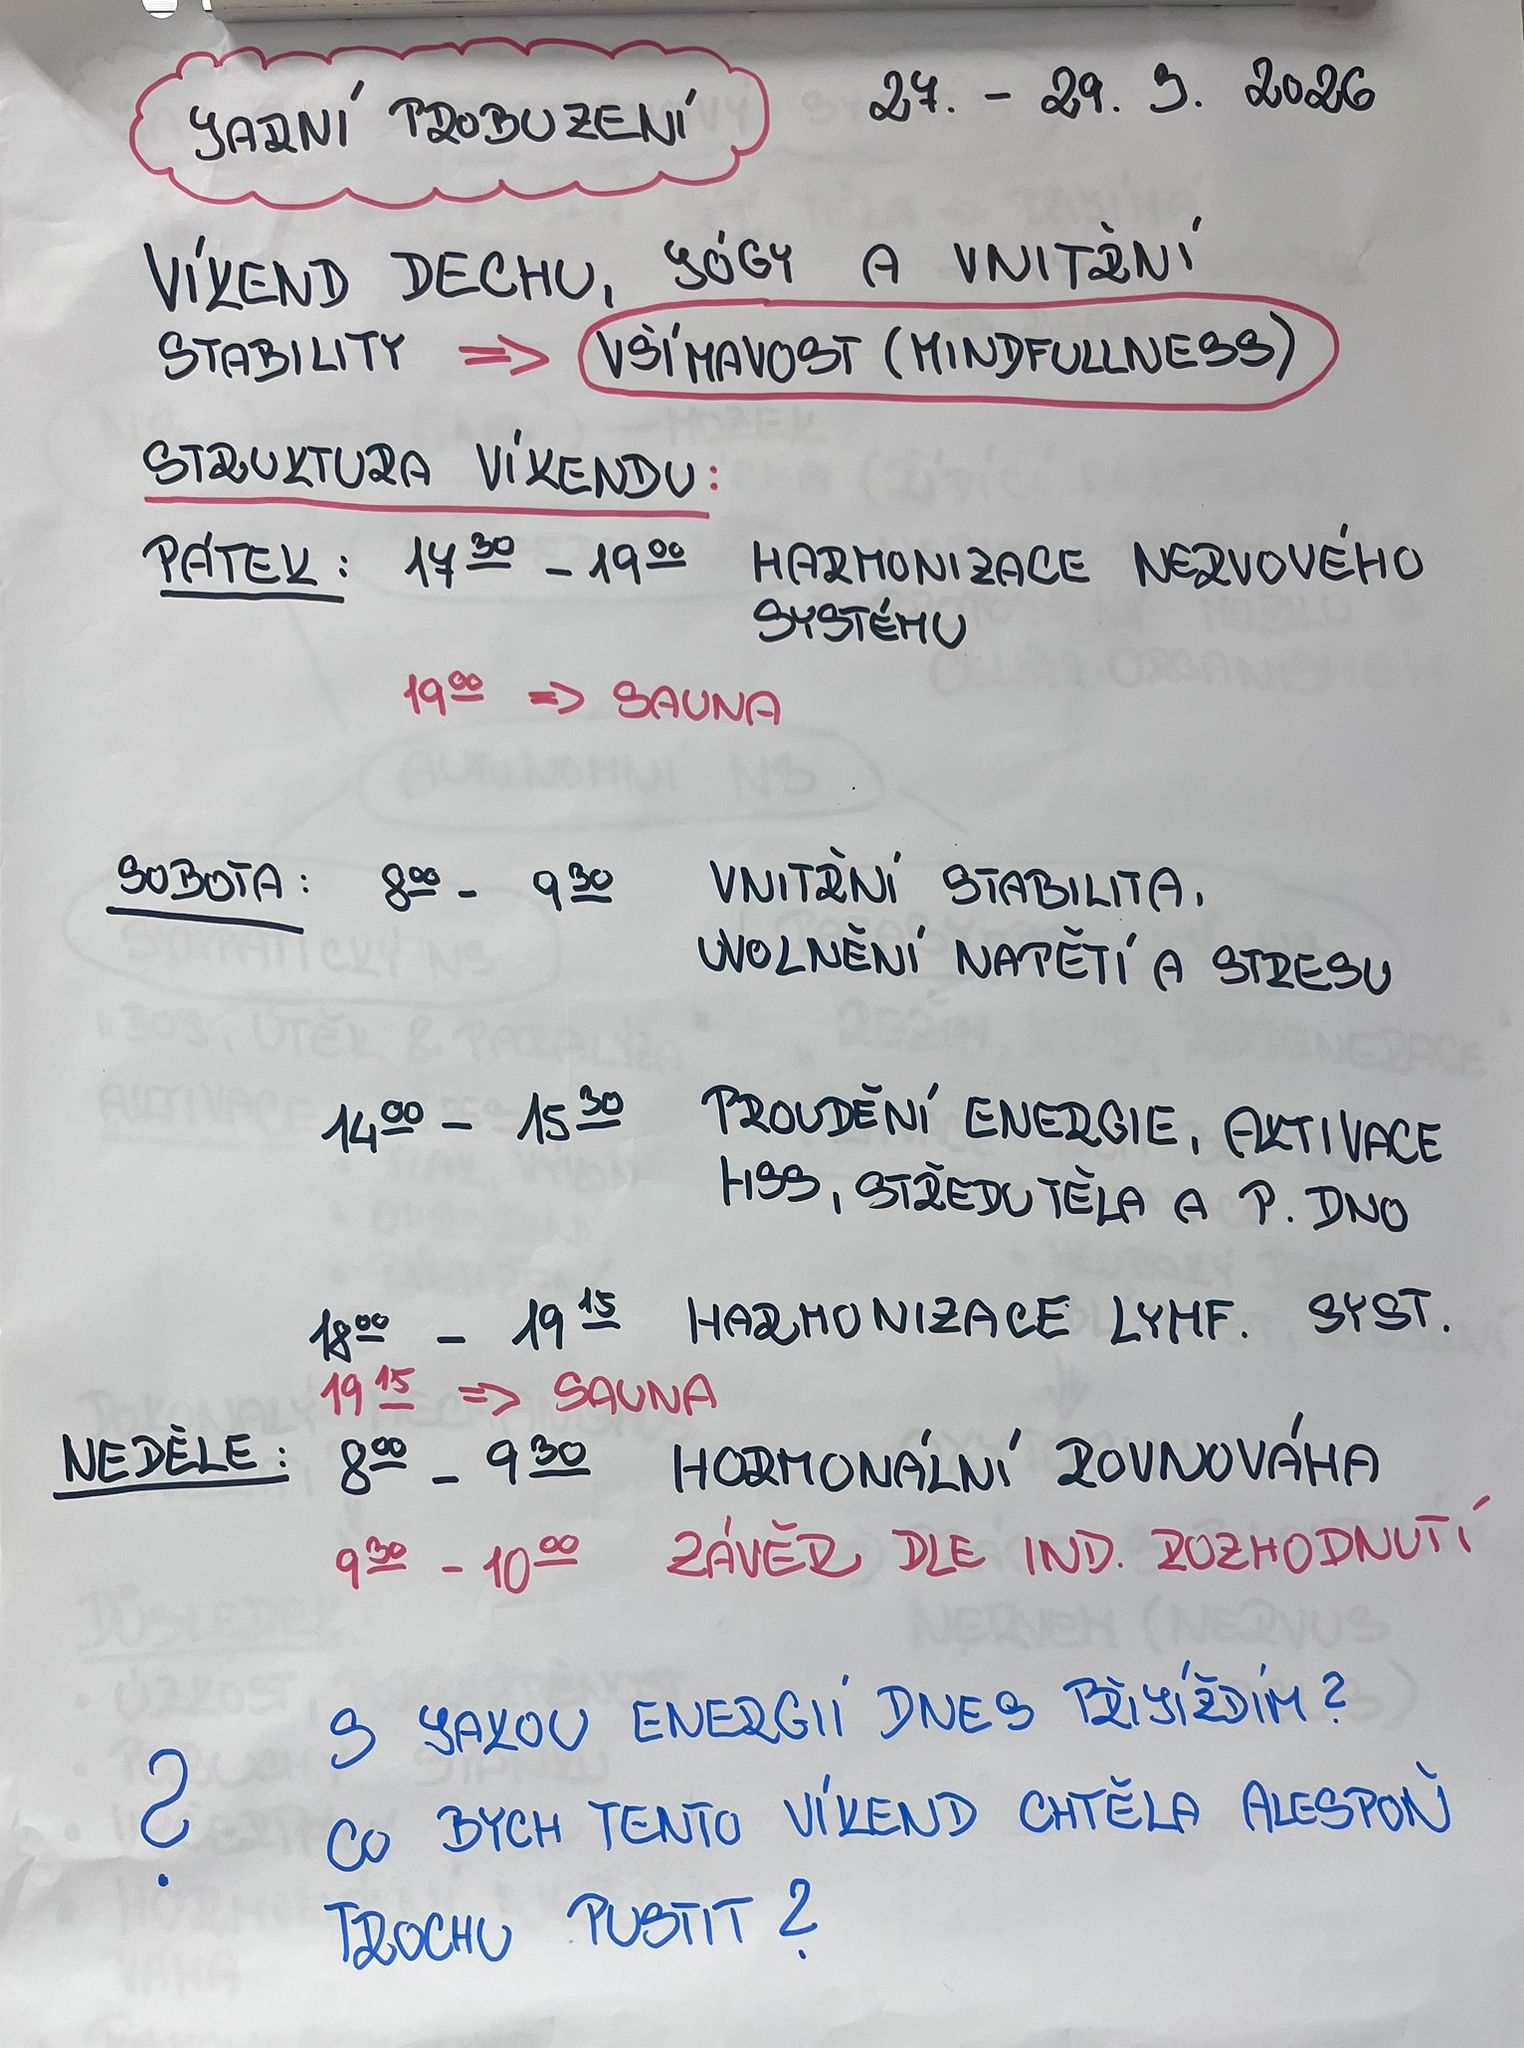 JARNÍ PROBUZENÍ 27. - 29. 3. 2026
VÍKEND DECHU, JÓGY A VNITŘNÍ
STABILITY => VŠÍMAVOST (MINDFULLNESS)
STRUKTURA VÍKENDU:
PÁTEK: 17 30 - 19 00 HARMONIZACE NERVOVÉHO
SYSTÉMU
19 00 => SAUNA
SOBOTA: 8 00 - 9 30 VNITŘNÍ STABILITA,
UVOLNĚNÍ NAPĚTÍ A STRESU
14 00 - 15 30 PROUDĚNÍ ENERGIE, AKTIVACE
HSS, STŘEDU TĚLA A P. DNO
18 00 - 19 15 HARMONIZACE LYMF. SYST.
19 15 => SAUNA
NEDĚLE: 8 00 - 9 30 HORMONÁLNÍ ROVNOVÁHA
9 30 - 10 00 ZÁVĚR DLE IND. ROZHODNUTÍ
S JAKOU ENERGIÍ DNES PŘIJÍŽDÍM?
? CO BYCH TENTO VÍKEND CHTĚLA ALESPOŇ
TROCHU PUSTIT?